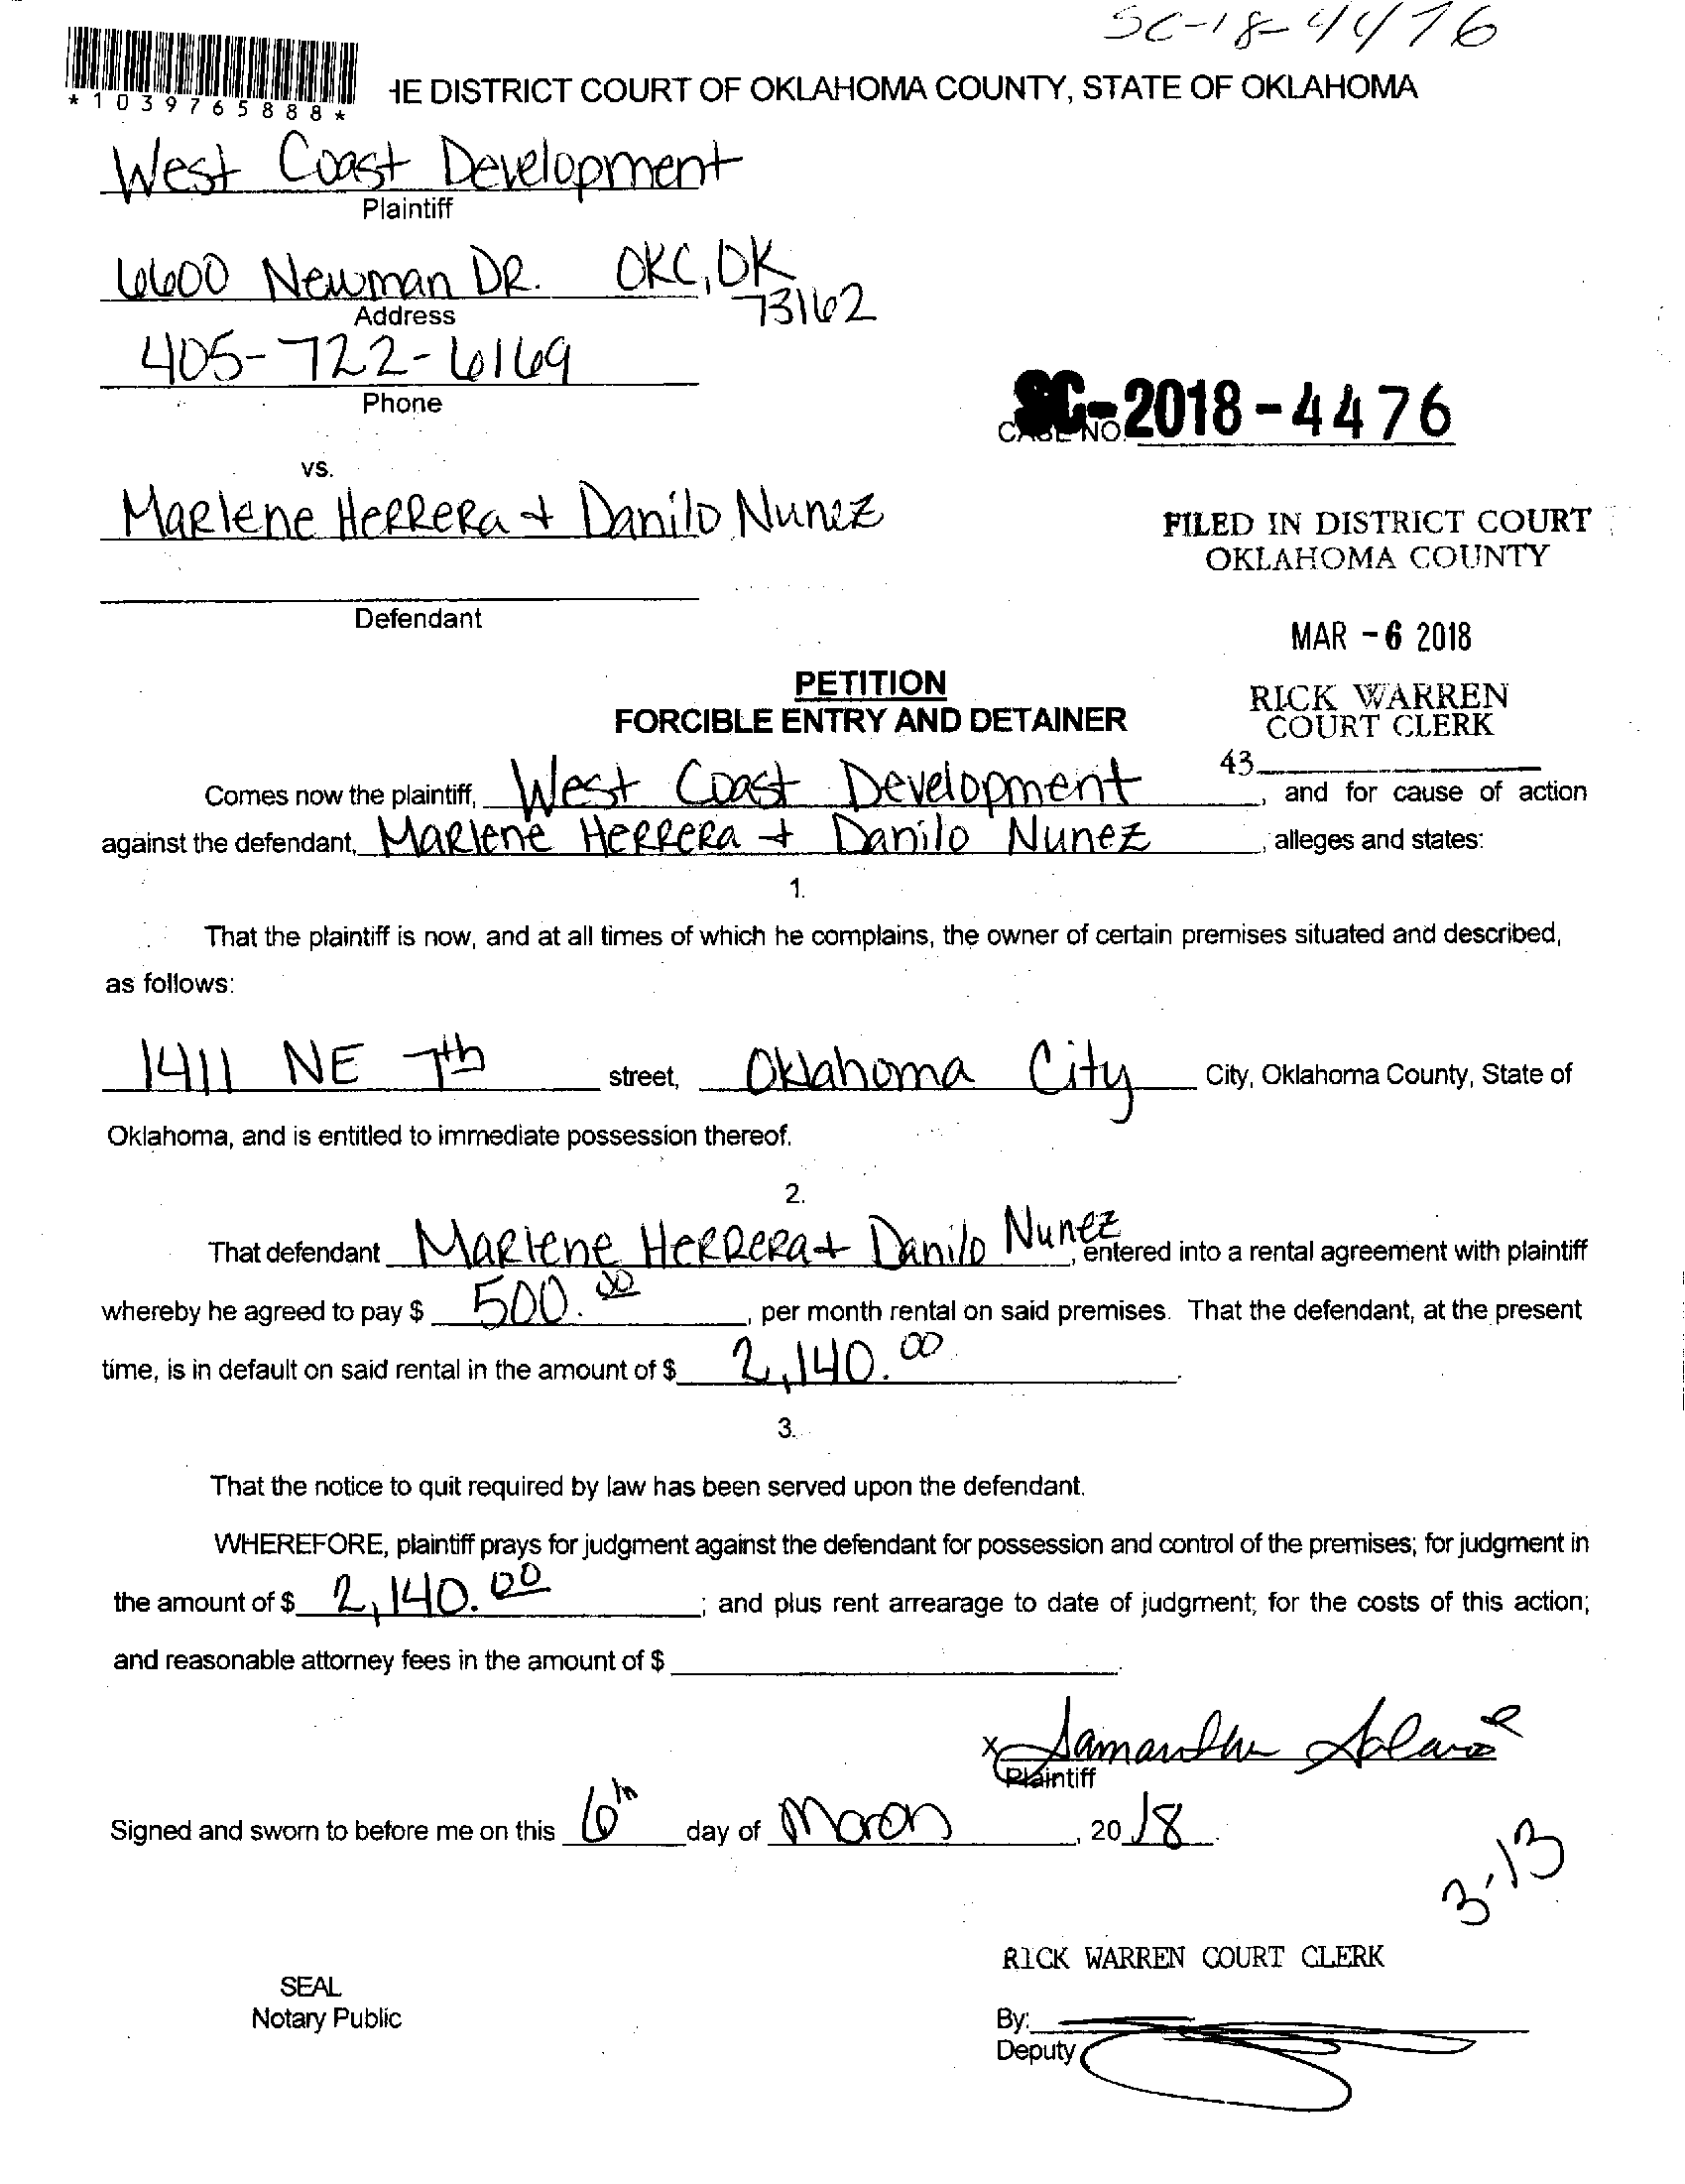 SC-18-4476
*1039765888*
HE DISTRICT COURT OF OKLAHOMA COUNTY, STATE OF OKLAHOMA
West Coast Development
Plaintiff
6600 Newman DR. OKC, OK
73162
Address
405-722-6169
Phone
SC-2018-4476
CASE NO.
vs.
Marlene Herrera + Danilo Nunez
FILED IN DISTRICT COURT
OKLAHOMA COUNTY
Defendant
MAR -6 2018
PETITION
FORCIBLE ENTRY AND DETAINER
RICK WARREN
COURT CLERK
43
Comes now the plaintiff, West Coast Development, and for cause of action
against the defendant, Marlene Herrera + Danilo Nunez, alleges and states:
1.
That the plaintiff is now, and at all times of which he complains, the owner of certain premises situated and described,
as follows:
1411 NE 7th street, Oklahoma City City, Oklahoma County, State of
Oklahoma, and is entitled to immediate possession thereof.
2.
That defendant Marlene Herrera + Danilo Nunez, entered into a rental agreement with plaintiff
whereby he agreed to pay $ 500.00, per month rental on said premises. That the defendant, at the present
time, is in default on said rental in the amount of $ 2,140.00.
3.
That the notice to quit required by law has been served upon the defendant.
WHEREFORE, plaintiff prays for judgment against the defendant for possession and control of the premises; for judgment in
the amount of $ 2,140.00; and plus rent arrearage to date of judgment; for the costs of this action;
and reasonable attorney fees in the amount of $
x Samantha
Plaintiff
Signed and sworn to before me on this 6th day of March, 2018.
3-13
RICK WARREN COURT CLERK
SEAL
Notary Public
By:
Deputy